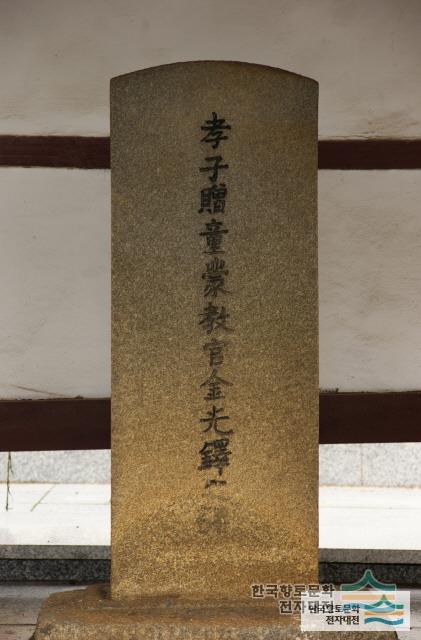 孝子贈童蒙教官金光鐸之碑
한국향토문화
전자대전
한국향토문화
전자대전